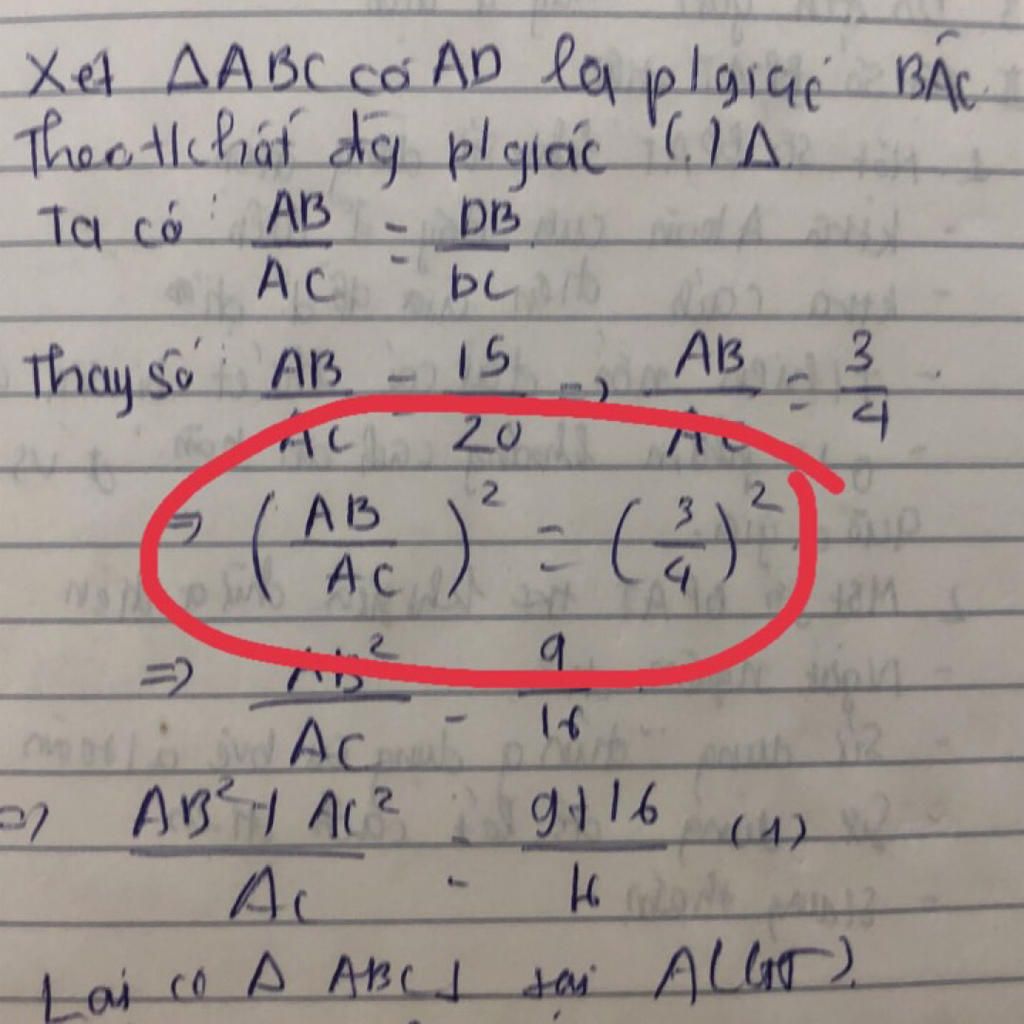 Xét ΔABC có AD là p/giác BÂC.
Theo t/chất đg p/giác (.) Δ
Ta có: AB/AC = DB/DC
Thay số: AB/AC = 15/20 => AB/AC = 3/4
=> (AB/AC)² = (3/4)²
=> AB²/AC = 9/16
=> AB² + AC²/AC = 9+16/16 (1)
Lại có Δ ABC ⊥ tại A (GT).